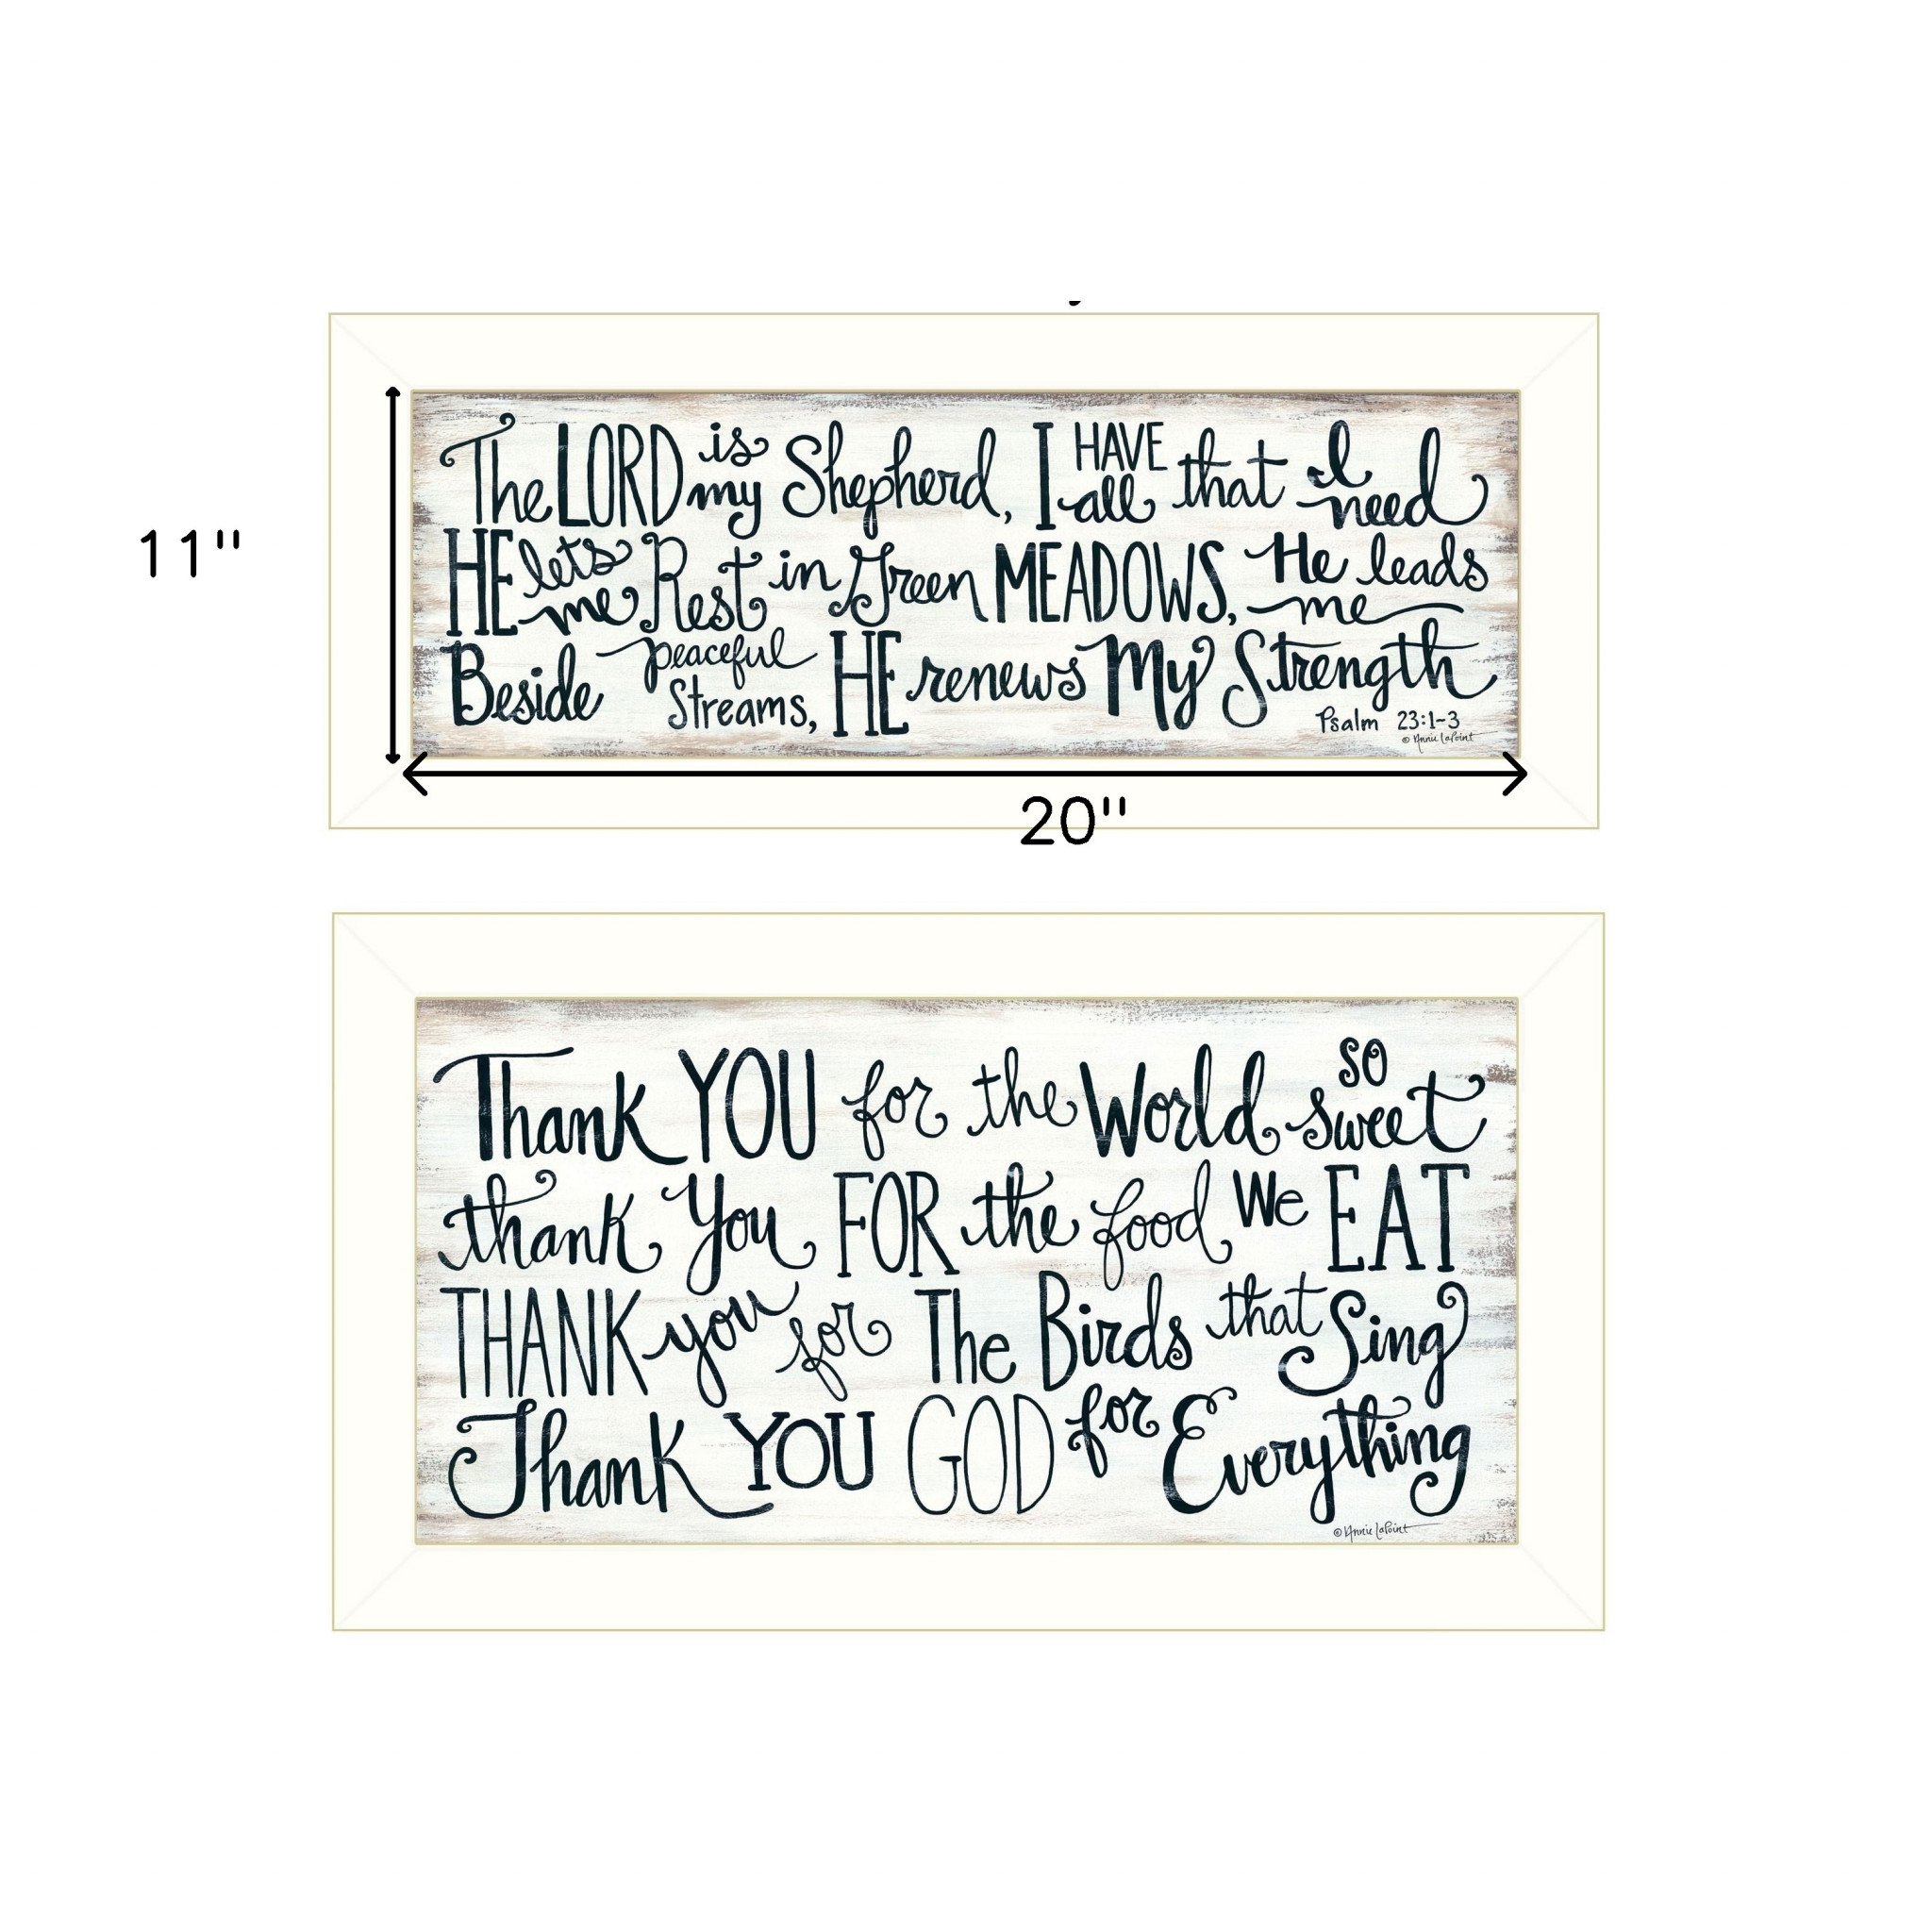 The LORD is my Shepherd, I HAVE all that I need
HE lets me Rest in Green MEADOWS, He leads me
Beside peaceful Streams, HE renews My Strength
Psalm 23:1-3
© Annie LaPoint
11"
20"
Thank YOU for the World so sweet
thank You FOR the food We EAT
THANK you for The Birds that Sing
Thank YOU GOD for Everything
© Annie LaPoint